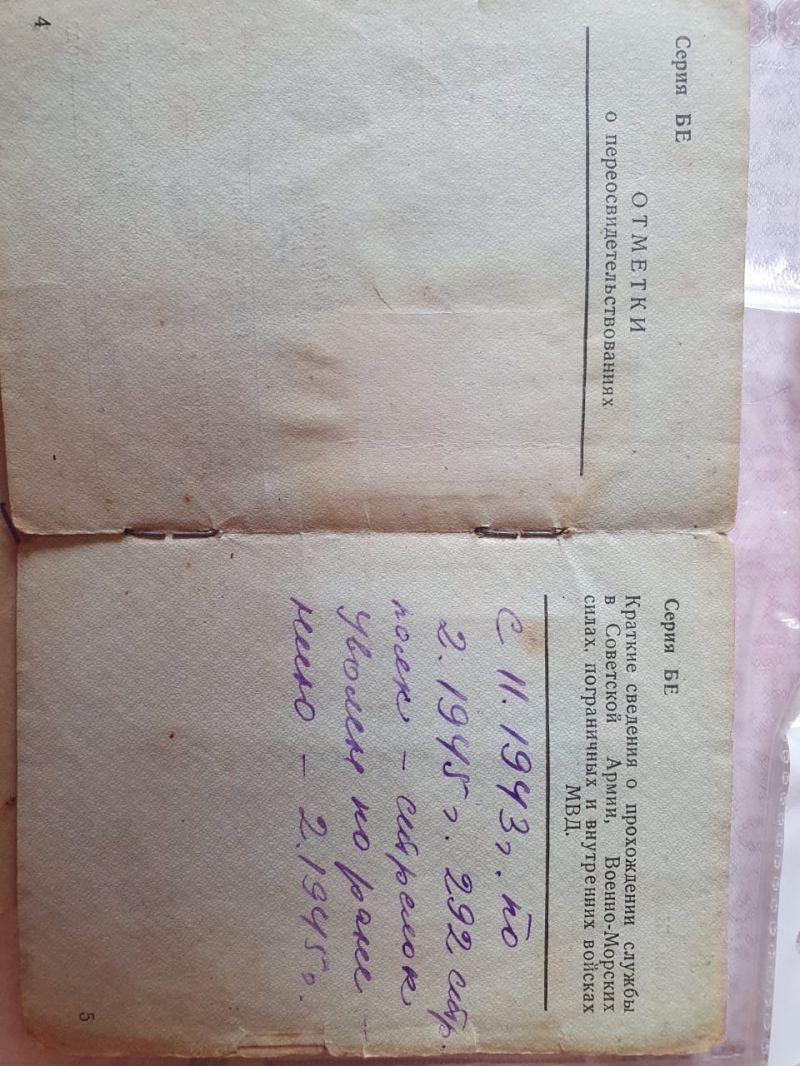 Серия БЕ
ОТМЕТКИ
о переосвидетельствованиях
4
Серия БЕ
Краткие сведения о прохождении службы
в Советской Армии, Военно-Морских
силах, пограничных и внутренних войсках
МВД.
с 11.1943 г. по
2.1945 г. 292 стр.
полк – стрелок
Уволен по ране-
нию – 2.1945 г.
5